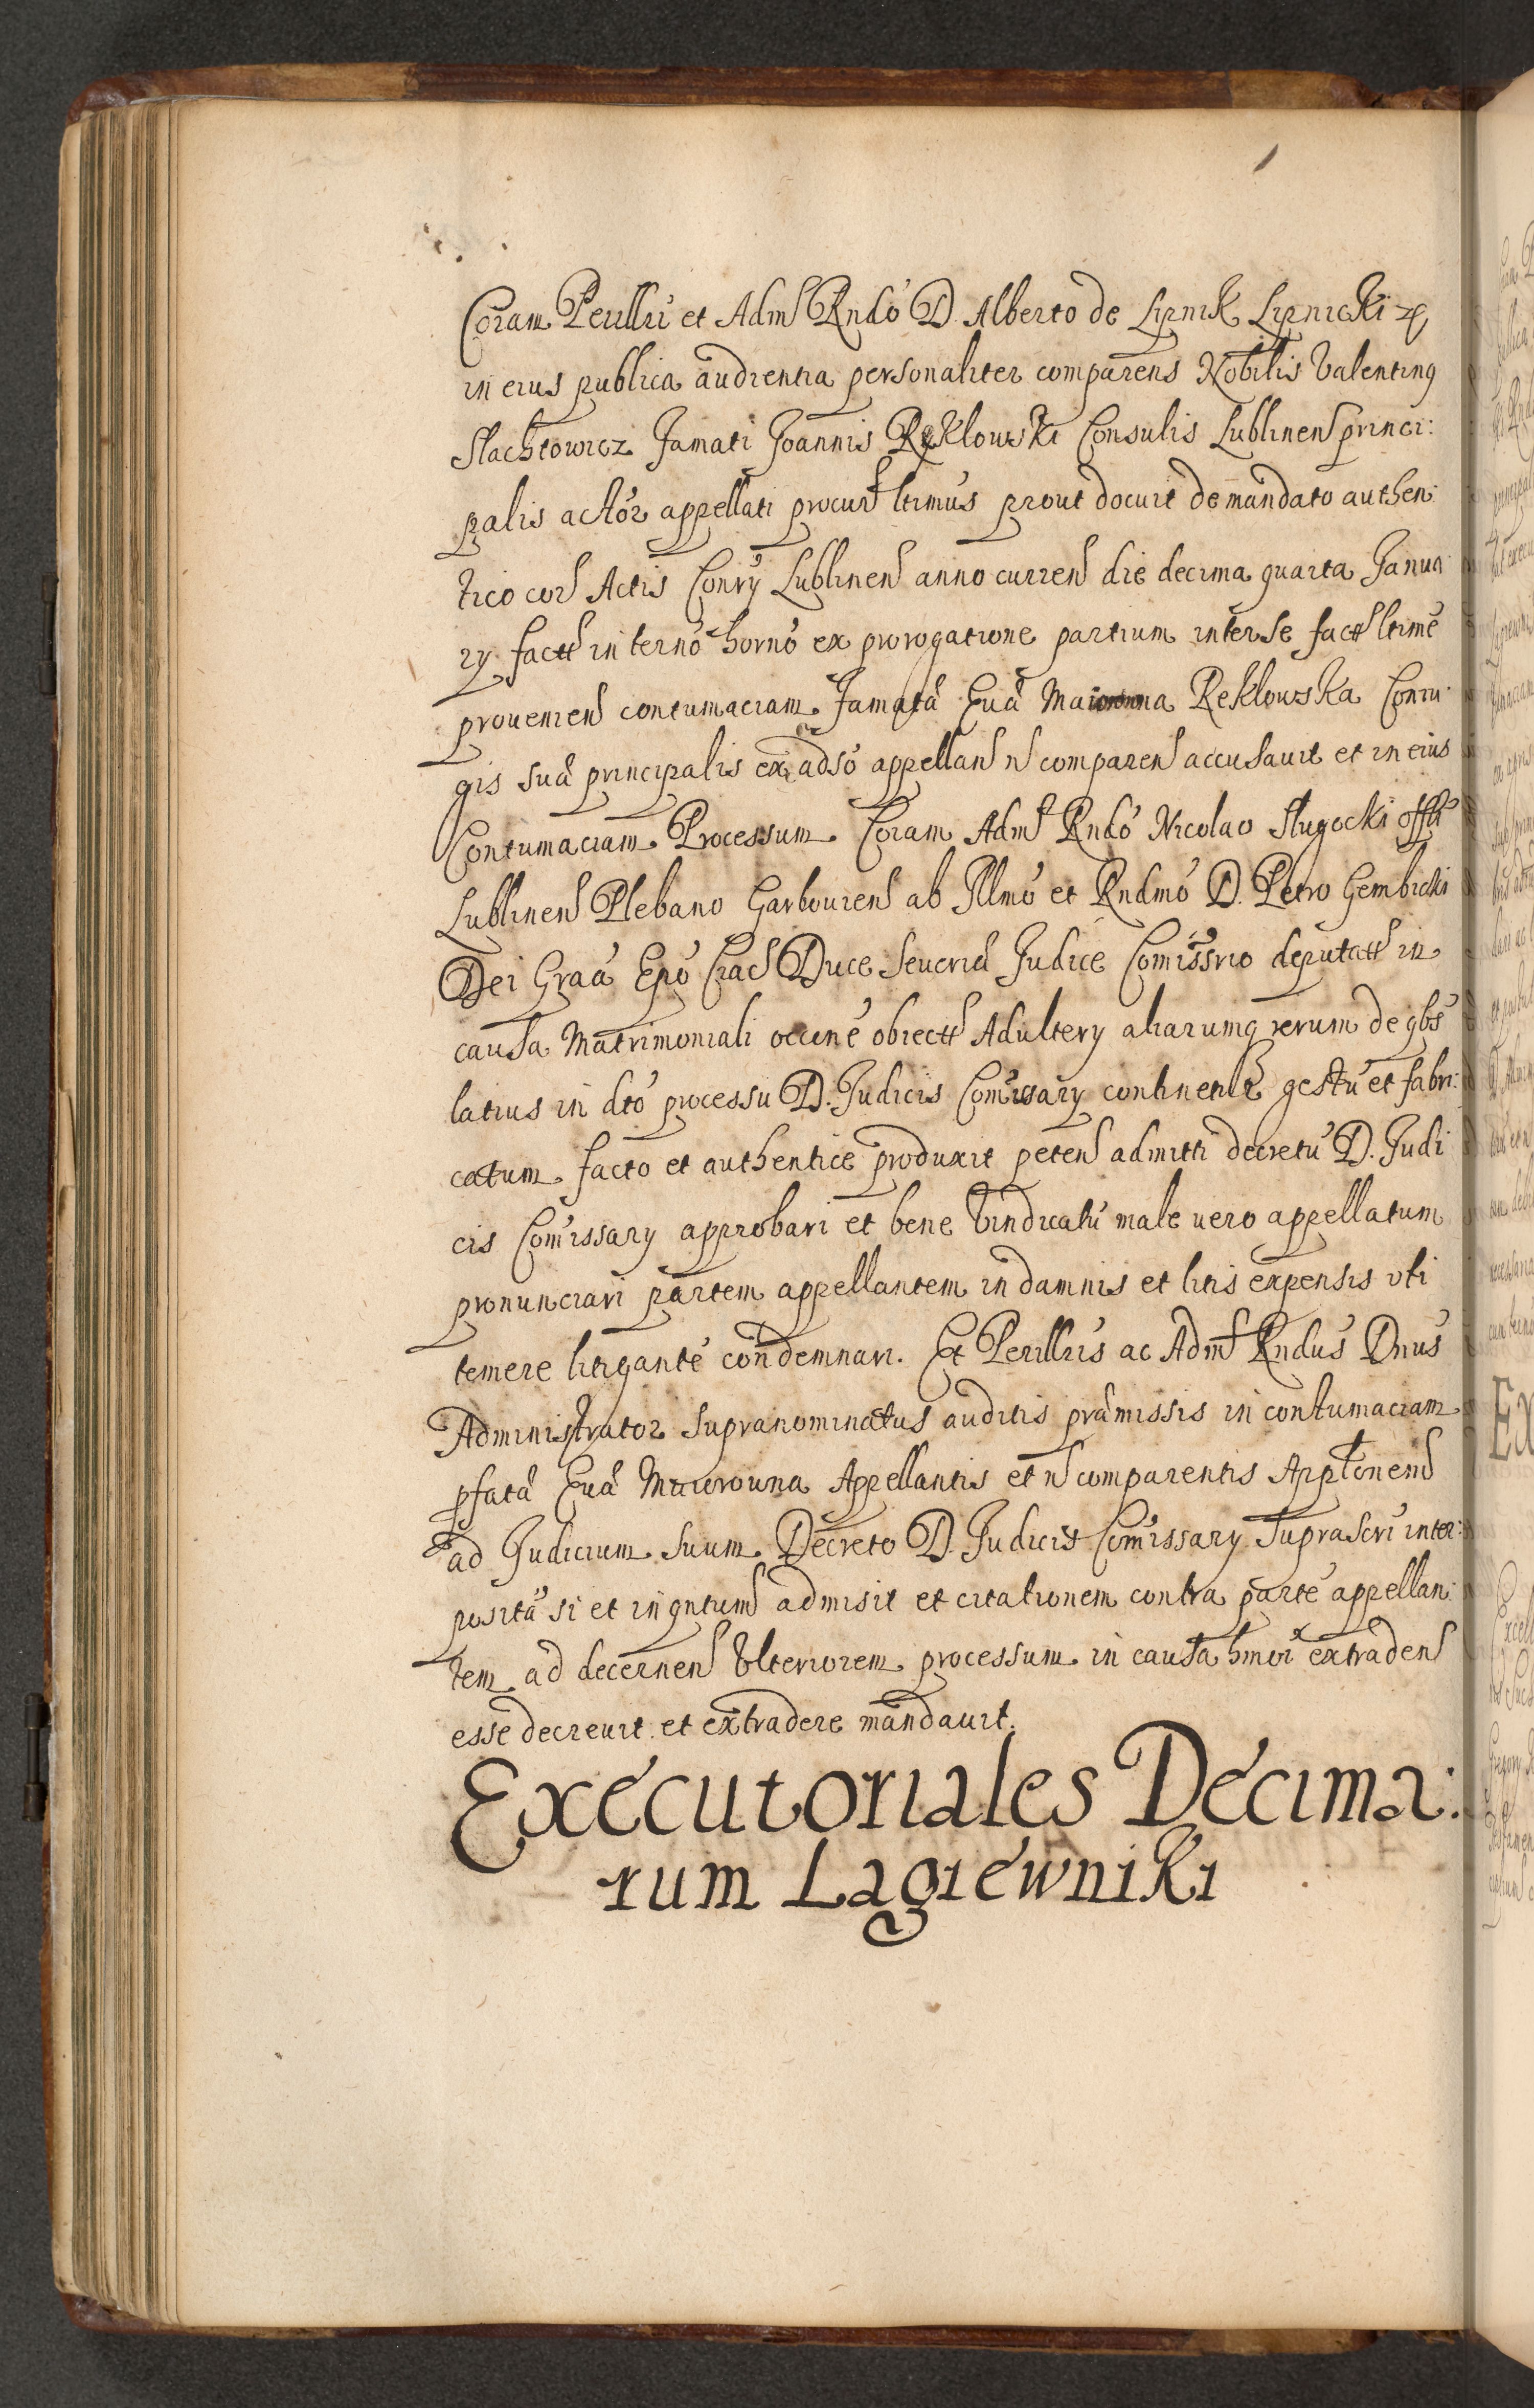 Coram Perillri et Adm Rndo D. Alberto de Lipnik Lipnicki
in eius publica audientia personaliter comparens Nobilis Valentinus
Slachtowicz Famati Joannis Reklowski Consulis Lublinen princi:
palis actor appellati procur ltimus prout docuit de mandato authen:
tico cor Actis Consry Lublinen anno curren die decima quarta Janua
ry fact in termo horno ex prorogatione partium inter se fact ltime
provenien contumaciam Famata Eva Reklowska Coniu
gis sua principalis ex adso appellan n comparen accusauit et in eius
Contumaciam Processum Coram Adm Rndo Nicolao Slugocki offli
Lublinen Plebano Garbouien ab Illmo et Rndmo D. Petro Gembicki
Dei Graa Epo Crac Duce Severia Judice Comissrio deputat in
causa Matrimoniali oecone obiect Adultery aliarumq rerum de qbs
latius in dto processu D. Judicis Comissary continetur gestu et fabri:
catum facto et authentice produxit peten admitti decretu D. Judi
cis Comissary approbari et bene vindicatu male vero appellatum
pronunciari partem appellantem in damnis et litis expensis uti
temere litigante condemnari. Et Perillris ac Adm Rndus Dnus
Administrator supranominatus auditis pramissis in contumaciam
pfata Eva Maierowna Appellantis et n comparentis Appltonem
ad Judicium suum Decreto D. Judicis Comissary suprascri inter:
posita si et in qntum admisit et citationem contra parte appellan:
tem ad decernen Ulteriorem processum in causa hmoi extraden
esse decreuit et extradere mandauit.
Executoriales Decima:
rum Lagiewniki